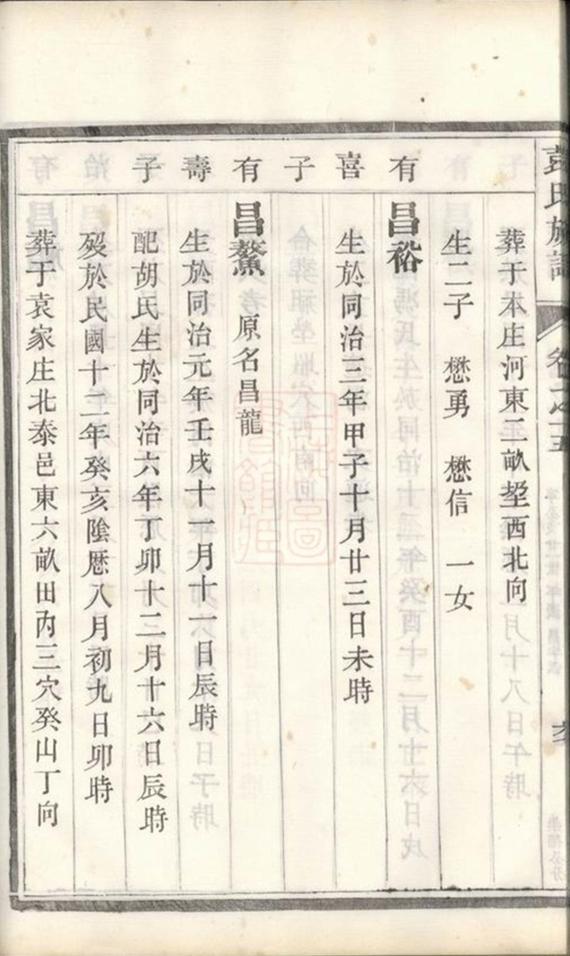 彭氏族譜
葬于本庄河東二畝塋西北向
生二子 懋勇 懋信 一女
有喜子
昌裕
生於同治三年甲子十月廿三日未時
有壽子
昌鰲 原名昌龍
生於同治元年壬戌十一月十一日辰時
配胡氏生於同治六年丁卯十二月十六日辰時
殁於民國十二年癸亥陰曆八月初九日卯時
葬于袁家庄北泰邑東六畝田內三穴癸山丁向